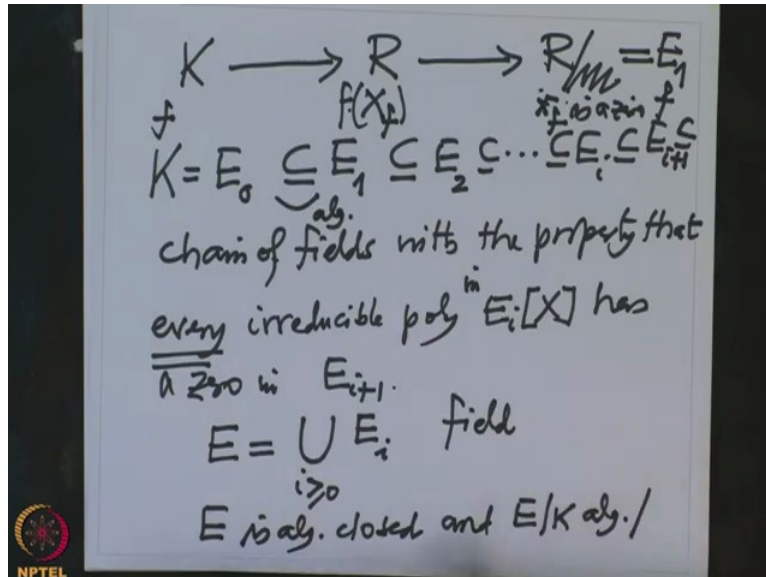 K ⟶ R ⟶ R/𝔪 = E₁
f f(X_f) x̄_f is a zero f
K = E₀ ⊆ E₁ ⊆ E₂ ⊆ ⋯ ⊆ E_i ⊆ E_{i+1} ⊆
alg.
chain of fields with the property that
every irreducible poly in E_i[X] has
a zero in E_{i+1}.
E = ⋃ E_i field
i≥0
E is alg. closed and E/K alg./
NPTEL